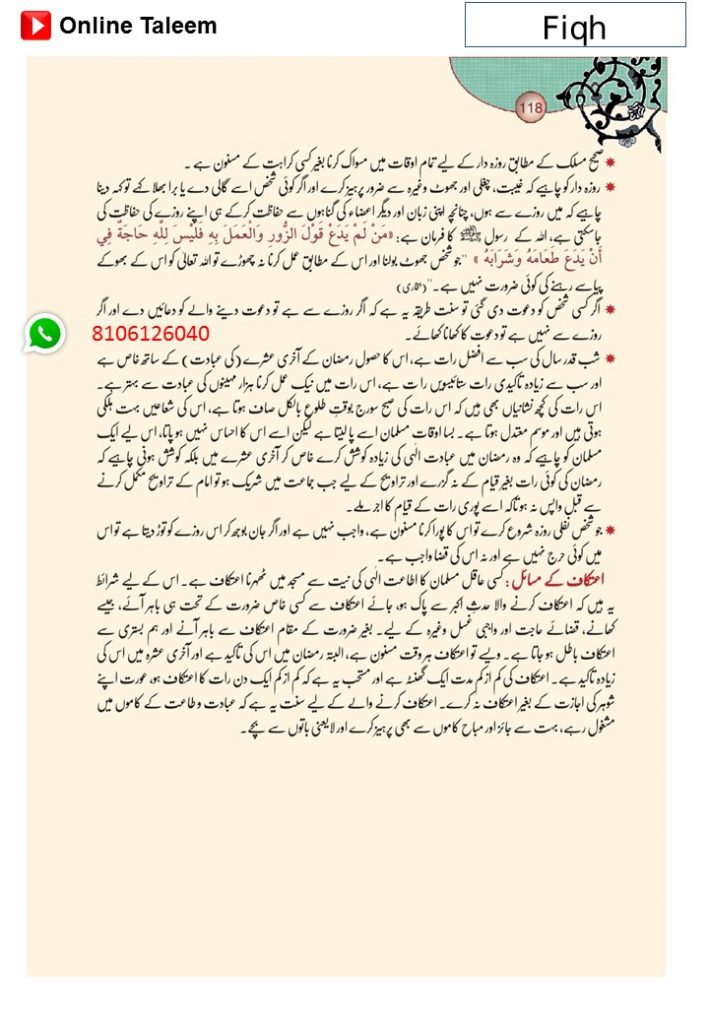 Online Taleem
Fiqh
118
صحیح مسلک کے مطابق روزہ دار کے لیے تمام اوقات میں مسواک کرنا بغیر کسی کراہت کے مسنون ہے ۔
روزہ دار کو چاہیے کہ غیبت، چغلی اور جھوٹ وغیرہ سے ضرور پرہیز کرے اور اگر کوئی شخص اسے گالی دے یا برا بھلا کہے تو کہہ دینا
چاہیے کہ میں روزے سے ہوں، چنانچہ اپنی زبان اور دیگر اعضاء کی گناہوں سے حفاظت کرکے ہی اپنے روزے کی حفاظت کی
جاسکتی ہے، اللہ کے رسول ﷺ کا فرمان ہے: «مَنْ لَمْ يَدَعْ قَوْلَ الزُّورِ وَالْعَمَلَ بِهِ فَلَيْسَ لِلَّهِ حَاجَةٌ فِي
أَنْ يَدَعَ طَعَامَهُ وَشَرَابَهُ» "جو شخص جھوٹ بولنا اور اس کے مطابق عمل کرنا نہ چھوڑے تو اللہ تعالیٰ کو اس کے بھوکے
پیاسے رہنے کی کوئی ضرورت نہیں ہے۔" (بخاری)
اگر کسی شخص کو دعوت دی گئی تو سنت طریقہ یہ ہے کہ اگر روزے سے ہے تو دعوت دینے والے کو دعائیں دے اور اگر
روزے سے نہیں ہے تو دعوت کا کھانا کھائے۔
8106126040
شب قدر سال کی سب سے افضل رات ہے، اس کا حصول رمضان کے آخری عشرے (کی عبادت) کے ساتھ خاص ہے
اور سب سے زیادہ تاکیدی رات ستائیسویں رات ہے، اس رات میں نیک عمل کرنا ہزار مہینوں کی عبادت سے بہتر ہے۔
اس رات کی کچھ نشانیاں بھی ہیں کہ اس رات کی صبح سورج بوقتِ طلوع بالکل صاف ہوتا ہے، اس کی شعاعیں بہت ہلکی
ہوتی ہیں اور موسم معتدل ہوتا ہے۔ بسا اوقات مسلمان اسے پا لیتا ہے لیکن اسے اس کا احساس نہیں ہو پاتا، اس لیے ایک
مسلمان کو چاہیے کہ وہ رمضان میں عبادت الٰہی کی زیادہ کوشش کرے خاص کر آخری عشرے میں بلکہ کوشش ہونی چاہیے کہ
رمضان کی کوئی رات بغیر قیام کے نہ گزرے اور تراویح کے لیے جب جماعت میں شریک ہو تو امام کے تراویح مکمل کرنے
سے قبل واپس نہ ہو تاکہ اسے پوری رات کے قیام کا اجر ملے۔
جو شخص نفلی روزہ شروع کرے تو اس کا پورا کرنا مسنون ہے، واجب نہیں ہے اور اگر جان بوجھ کر اس روزے کو توڑ دیتا ہے تو اس
میں کوئی حرج نہیں ہے اور نہ اس کی قضا واجب ہے۔
اعتکاف کے مسائل: کسی عاقل مسلمان کا اطاعت الٰہی کی نیت سے مسجد میں ٹھہرنا اعتکاف ہے۔ اس کے لیے شرائط
یہ ہیں کہ اعتکاف کرنے والا حدثِ اکبر سے پاک ہو، جائے اعتکاف سے کسی خاص ضرورت کے تحت ہی باہر آئے، جیسے
کھانے، قضائے حاجت اور واجبی غسل وغیرہ کے لیے۔ بغیر ضرورت کے مقام اعتکاف سے باہر آنے اور ہم بستری سے
اعتکاف باطل ہو جاتا ہے۔ ویسے تو اعتکاف ہر وقت مسنون ہے، البتہ رمضان میں اس کی تاکید ہے اور آخری عشرہ میں اس کی
زیادہ تاکید ہے۔ اعتکاف کی کم از کم مدت ایک گھنٹہ ہے اور مستحب یہ ہے کہ کم از کم ایک دن رات کا اعتکاف ہو، عورت اپنے
شوہر کی اجازت کے بغیر اعتکاف نہ کرے۔ اعتکاف کرنے والے کے لیے سنت یہ ہے کہ عبادت و طاعت کے کاموں میں
مشغول رہے، بہت سے جائز اور مباح کاموں سے بھی پرہیز کرے اور لایعنی باتوں سے بچے۔